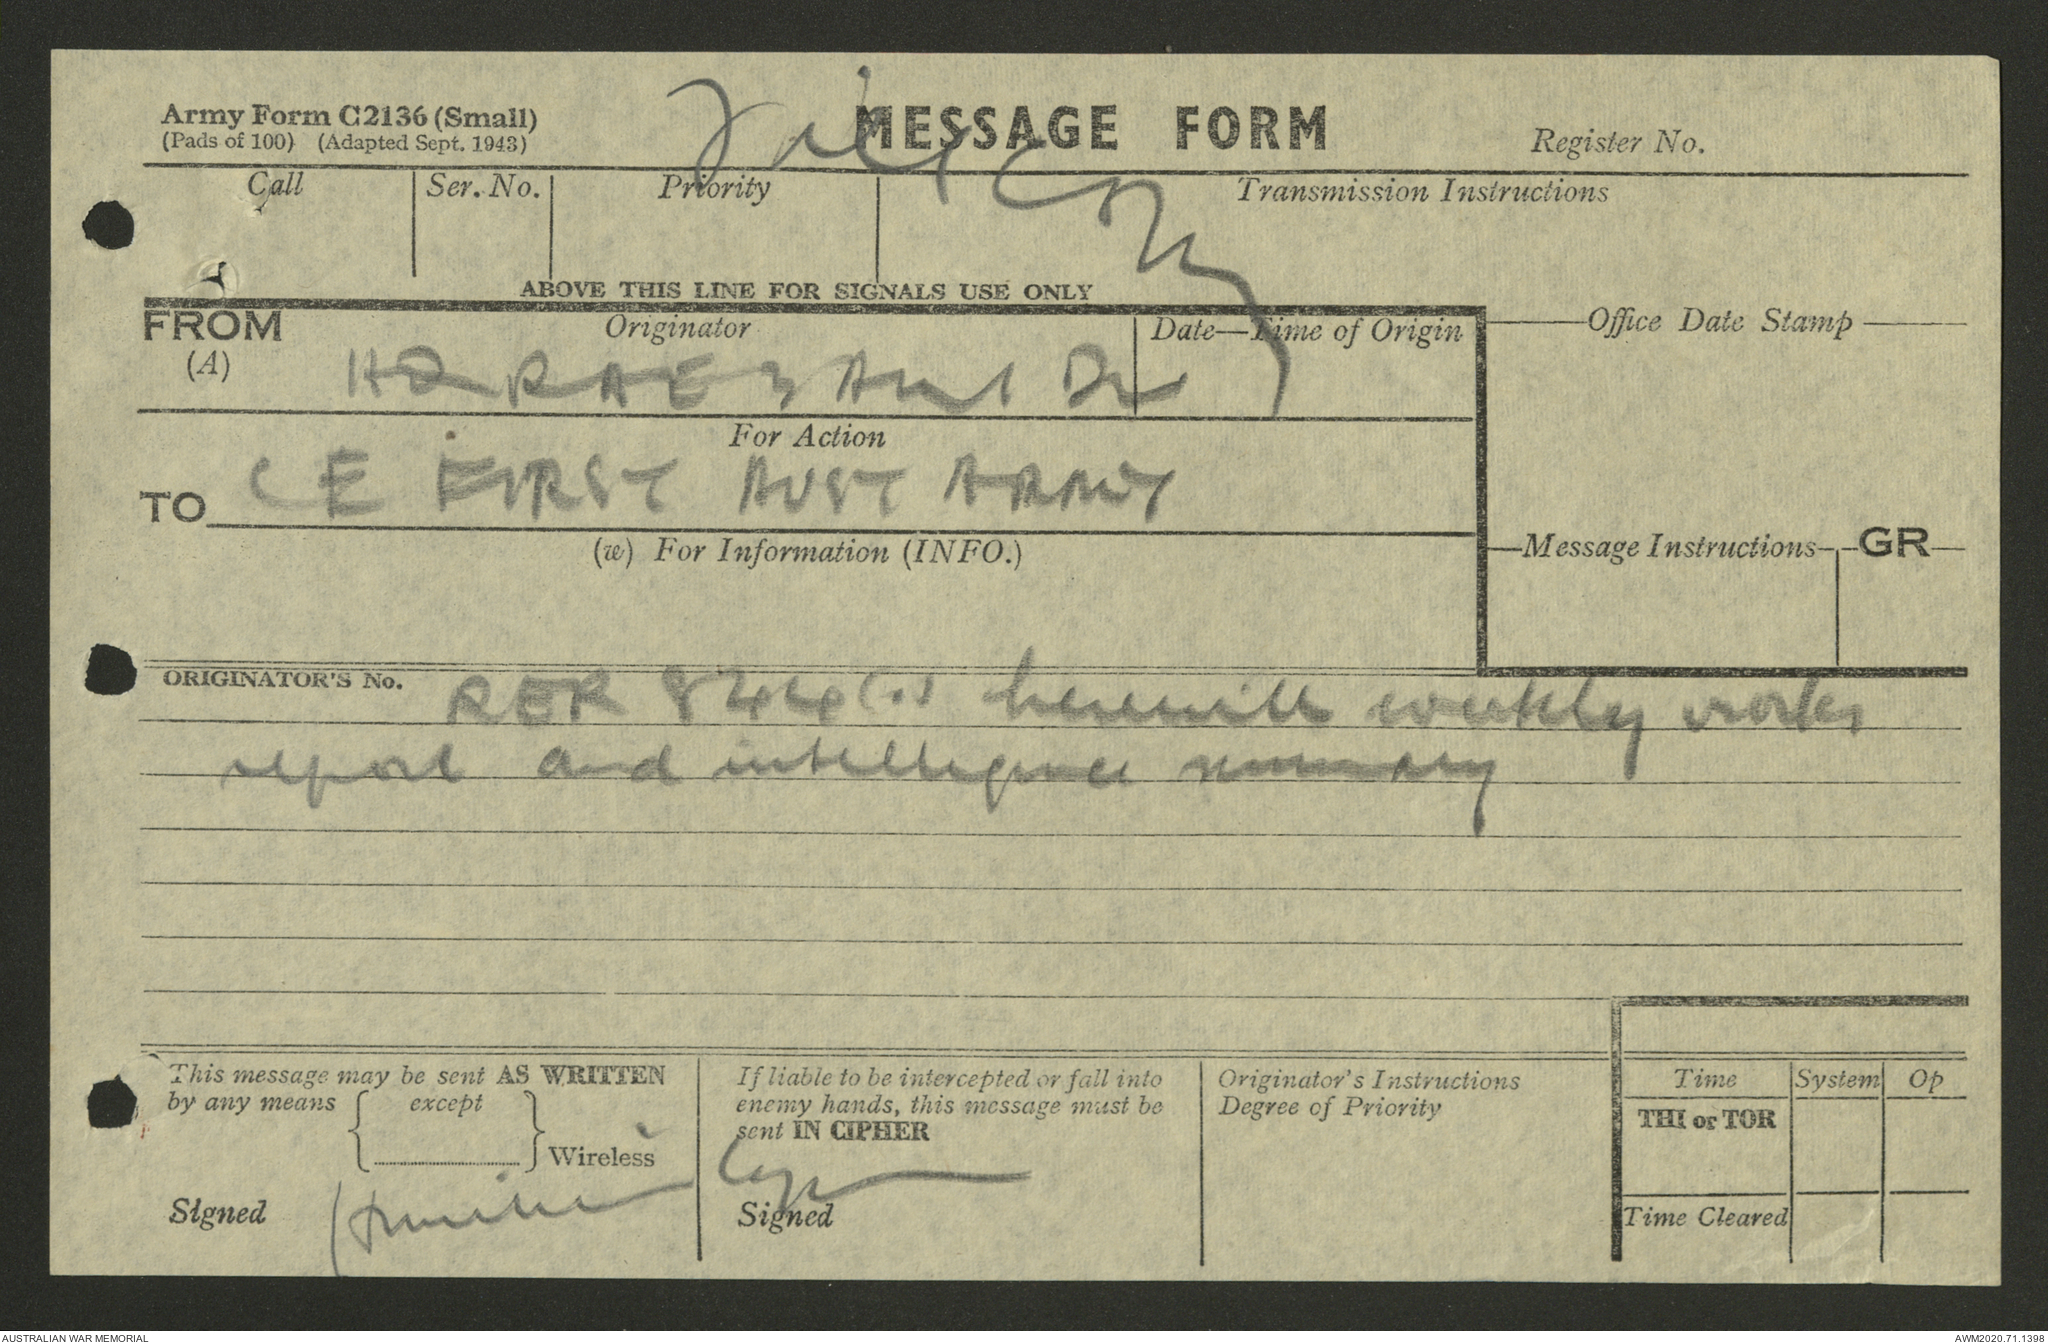 Army Form C2136 (Small)
(Pads of 100) (Adapted Sept. 1943)
MESSAGE FORM
Register No.
File Copy
Call
Ser. No.
Priority
Transmission Instructions
ABOVE THIS LINE FOR SIGNALS USE ONLY
FROM
(A)
Originator
Date—Time of Origin
Office Date Stamp
HQ RAE 3 Aust Div
For Action
TO
CE FIRST AUST ARMY
(w) For Information (INFO.)
Message Instructions
GR
ORIGINATOR'S No.
RER 844 (.) herewith weekly works
report and intelligence summary
This message may be sent AS WRITTEN
by any means
except
Wireless
Signed
If liable to be intercepted or fall into
enemy hands, this message must be
sent IN CIPHER
Signed
Originator's Instructions
Degree of Priority
Time
System
Op
THI or TOR
Time Cleared
AUSTRALIAN WAR MEMORIAL
AWM2020.71.1398